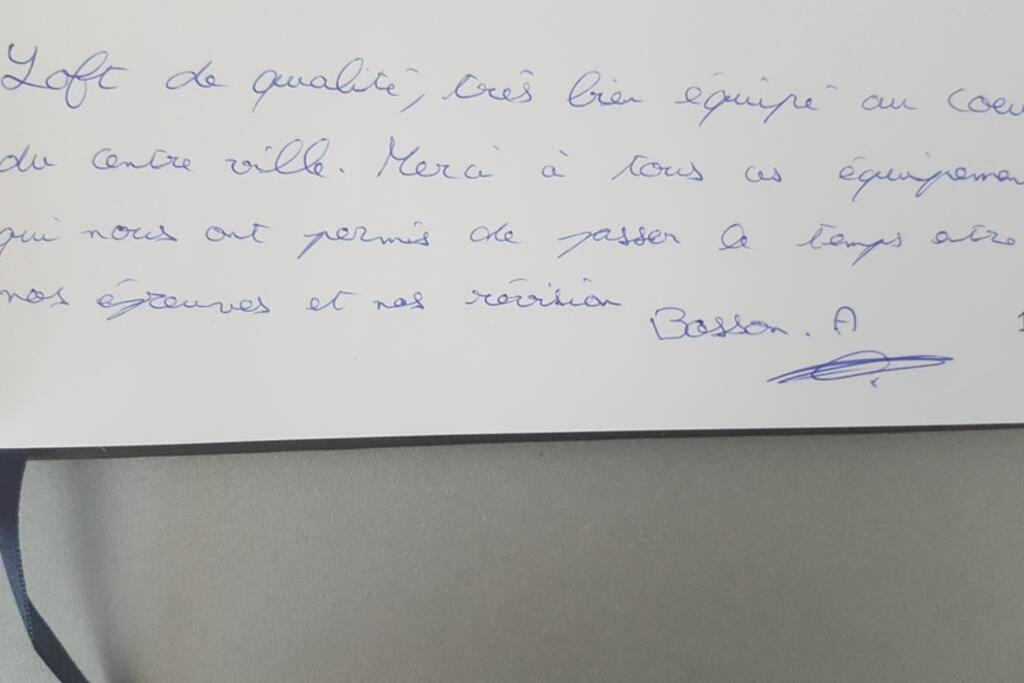 Loft de qualité, très bien équipé au coeu
du centre ville. Merci à tous ces équipemen
qui nous ont permis de passer le temps entre
nos épreuves et nos révision
Bosson. A
1